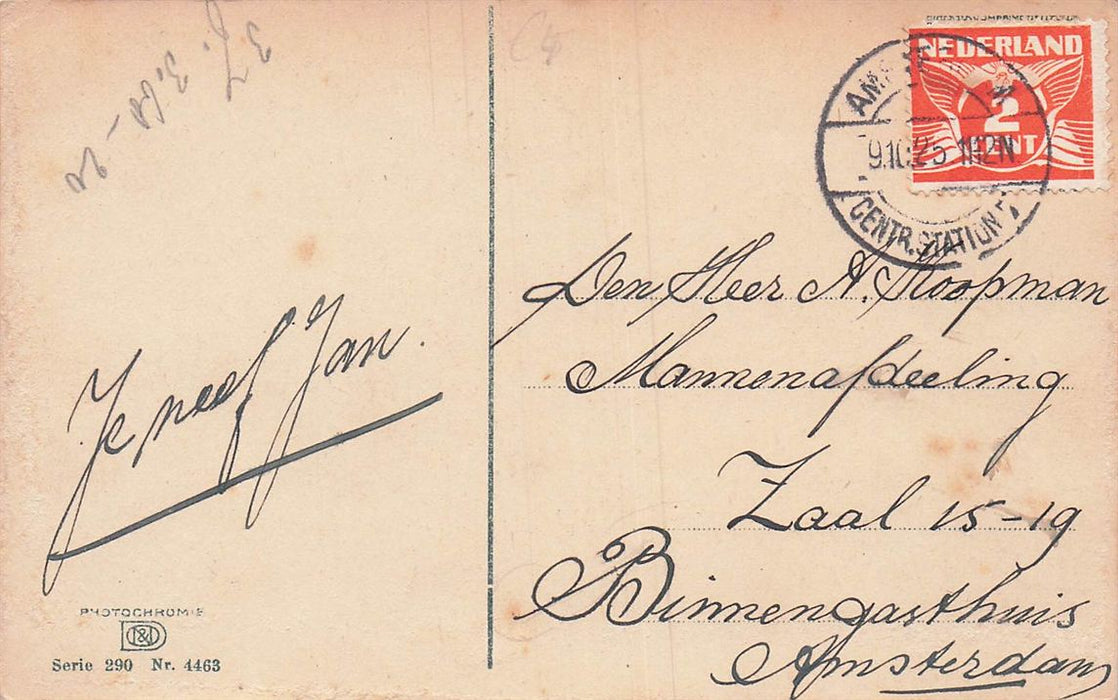 Je neef Jan.
PHOTOCHROMIE
D&D
Serie 290 Nr. 4463
NEDERLAND
2
CENT
CENTR. STATION
Den Heer A. Koopman
Mannenafdeeling
Zaal 15-19
Binnengasthuis
Amsterdam